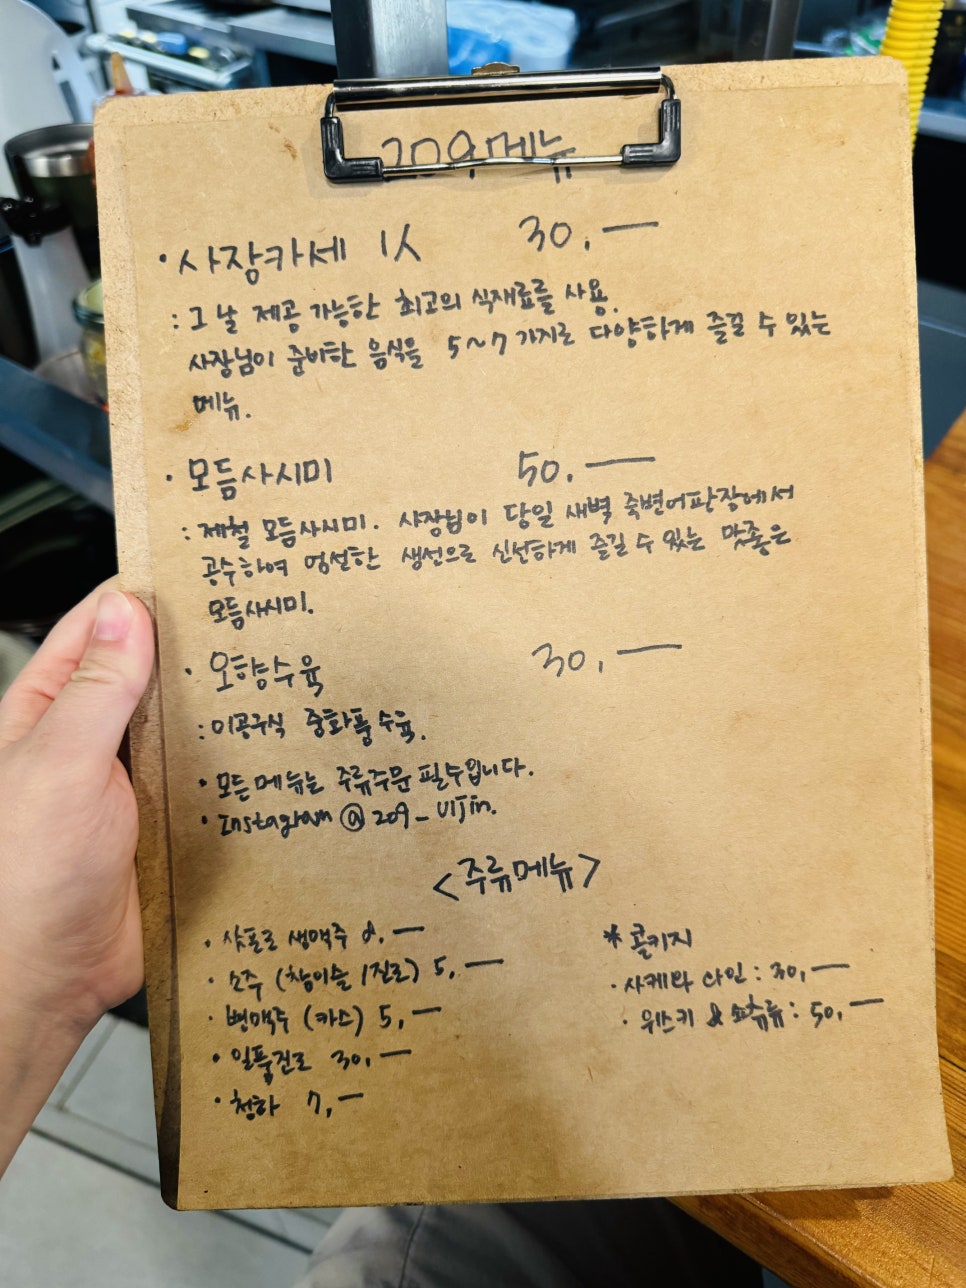 209메뉴
· 사장카세 1人 30,—
: 그날 제공 가능한 최고의 식재료를 사용.
사장님이 준비한 음식을 5~7가지로 다양하게 즐길 수 있는
메뉴.
· 모듬사시미 50,—
: 제철 모듬사시미. 사장님이 당일 새벽 죽변어판장에서
공수하여 엄선한 생선으로 신선하게 즐길 수 있는 맛좋은
모듬사시미.
· 오향수육 30,—
: 이공구식 중화풍 수육.
· 모든메뉴는 주류주문 필수입니다.
· Instagram @ 209_uijin.
<주류메뉴>
· 삿포로 생맥주 8,—
· 소주 (참이슬/진로) 5,—
· 병맥주 (카스) 5,—
· 일품진로 30,—
· 청하 7,—
* 콜키지
· 사케와 와인 : 30,—
· 위스키 & 소츄류 : 50,—